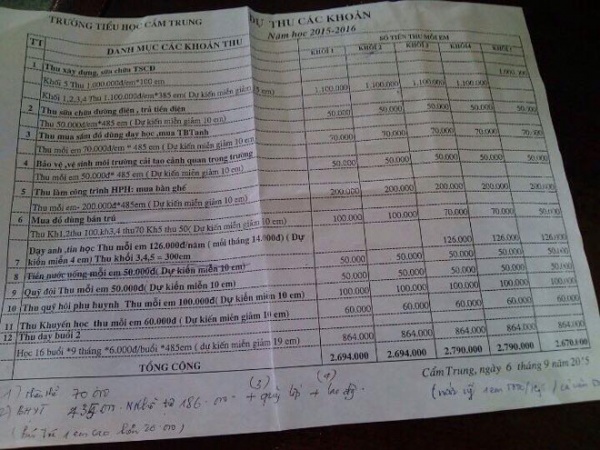 TRƯỜNG TIỂU HỌC CẨM TRUNG
DỰ THU CÁC KHOẢN
Năm học 2015-2016
TT DANH MỤC CÁC KHOẢN THU SỐ TIỀN THU MỖI EM
KHỐI 1 KHỐI 2 KHỐI 3 KHỐI 4 KHỐI 5
1 Thu xây dựng, sửa chữa TSCĐ
Khối 5 Thu 1.000.000đ/em*100 em 1.000.000
Khối 1,2,3,4 Thu 1.100.000đ/em*385 em( Dự kiến miễn giảm 5 em) 1.100.000 1.100.000 1.100.000 1.100.000
2 Thu sửa chữa đường điện, trả tiền điện
Thu 50.000đ/em*485 em( Dự kiến miễn giảm 10 em) 50.000 50.000 50.000 50.000 50.000
3 Thu mua sắm đồ dùng dạy học ,mua TBTanh
Thu mỗi em 70.000đ/em* 485 em( Dự kiến miễn giảm 10 em) 70.000 70.000 70.000 70.000 70.000
4 Bảo vệ ,vệ sinh môi trường cải tạo cảnh quan trong trường
Thu mỗi em 50.000đ* 485 em( Dự kiến miễn giảm 10 em) 50.000 50.000 50.000 50.000 50.000
5 Thu làm công trình HPH: mua bàn ghế
Thu mỗi em- 200.000đ*485em( Dự kiến miễn giảm 10 em) 200.000 200.000 200.000 200.000 200.000
6 Mua đồ dùng bán trú
Thu Kh1,2thu 100,kh3,4 thu70 Kh5 thu 50( Dự kiến miễn giảm 10 em) 100.000 100.000 70.000 70.000 50.000
7 Dạy anh ,tin học Thu mỗi em 126.000đ/năm ( mỗi tháng 14.000đ) ( Dự kiến miễn 4 em) Thu khối 3,4,5 = 300em 126.000 126.000 126.000
8 Tiền nước uống mỗi em 50.000đ( Dự kiến miễn 10 em) 50.000 50.000 50.000 50.000 50.000
9 Quỹ đội Thu mỗi em 50.000đ( Dự kiến miễn 10 em) 50.000 50.000 50.000 50.000 50.000
10 Thu quỹ hội phụ huynh Thu mỗi em 100.000đ( Dự kiến miễn 10 em) 100.000 100.000 100.000 100.000 100.000
11 Thu Khuyến học thu mỗi em 60.000đ ( Dự kiến miễn giảm 10 em) 60.000 60.000 60.000 60.000 60.000
12 Thu dạy buổi 2
Học 16 buổi *9 tháng *6.000đ/buổi *485em( dự kiến miễn giảm 19 em) 864.000 864.000 864.000 864.000 864.000
TỔNG CỘNG 2.694.000 2.694.000 2.790.000 2.790.000 2.670.000
Cẩm Trung, ngày 6 tháng 9 năm 2015
1) 70 000
2) BHYT